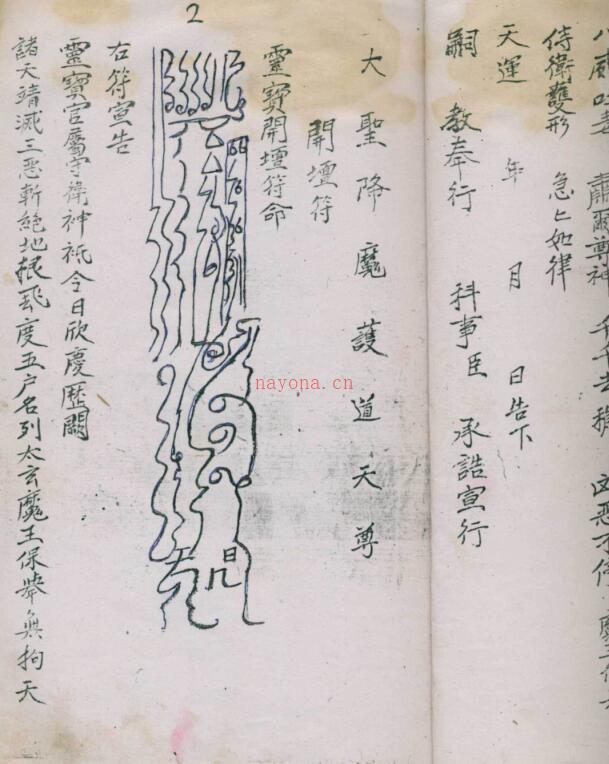 侍衛護形 急々如律
天運 年 月 日告下
嗣教奉行 科事臣 承誥宣行
大聖降魔護道天尊
開壇符
靈寶開壇符命
右符宣告
靈寶官屬守衛神祇令日欣慶歷關
諸天靖滅三惡斬絕地根飛度五户名列太玄魔王保舉無拘天
2
nayona.cn